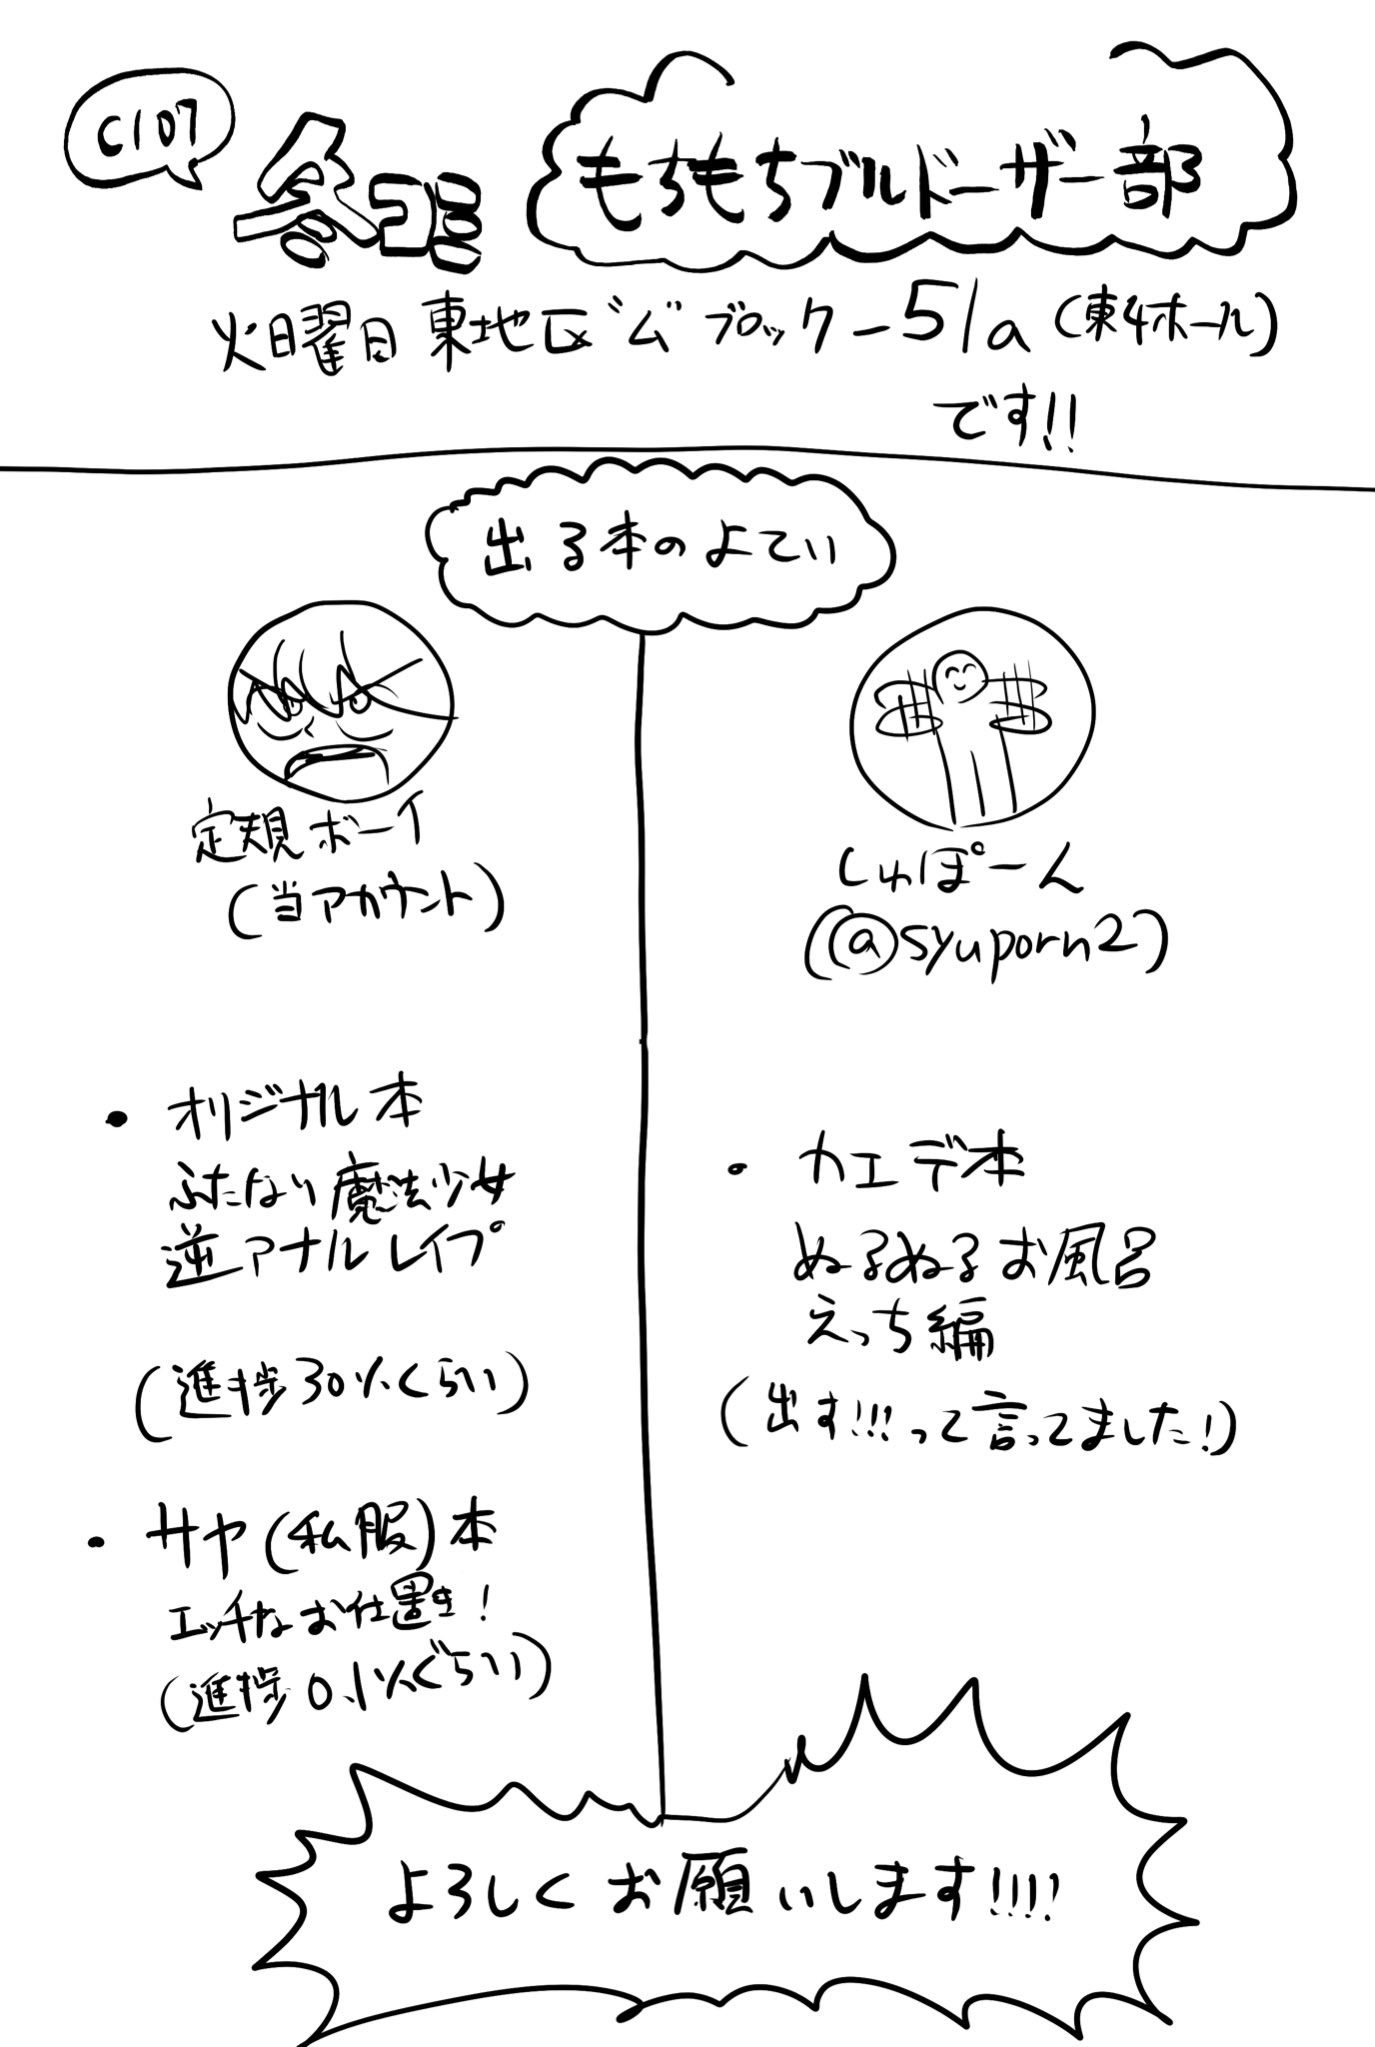 C107
冬コミ
もちもちブルドーザー部
火曜日 東地区"ム"ブロック-51a(東4ホール)
です!!
出る本のよてい
定規ボーイ
(当アカウント)
・オリジナル本
ふたなり魔法少女
逆アナルレイプ
(進捗30%くらい)
・サヤ(私服)本
エッチなお仕置き!
(進捗0.1%ぐらい)
しゅぽーん
(@syuporn2)
・カエデ本
ぬるぬるお風呂
えっち編
(出す!!!って言ってました!)
よろしくお願いします!!!!